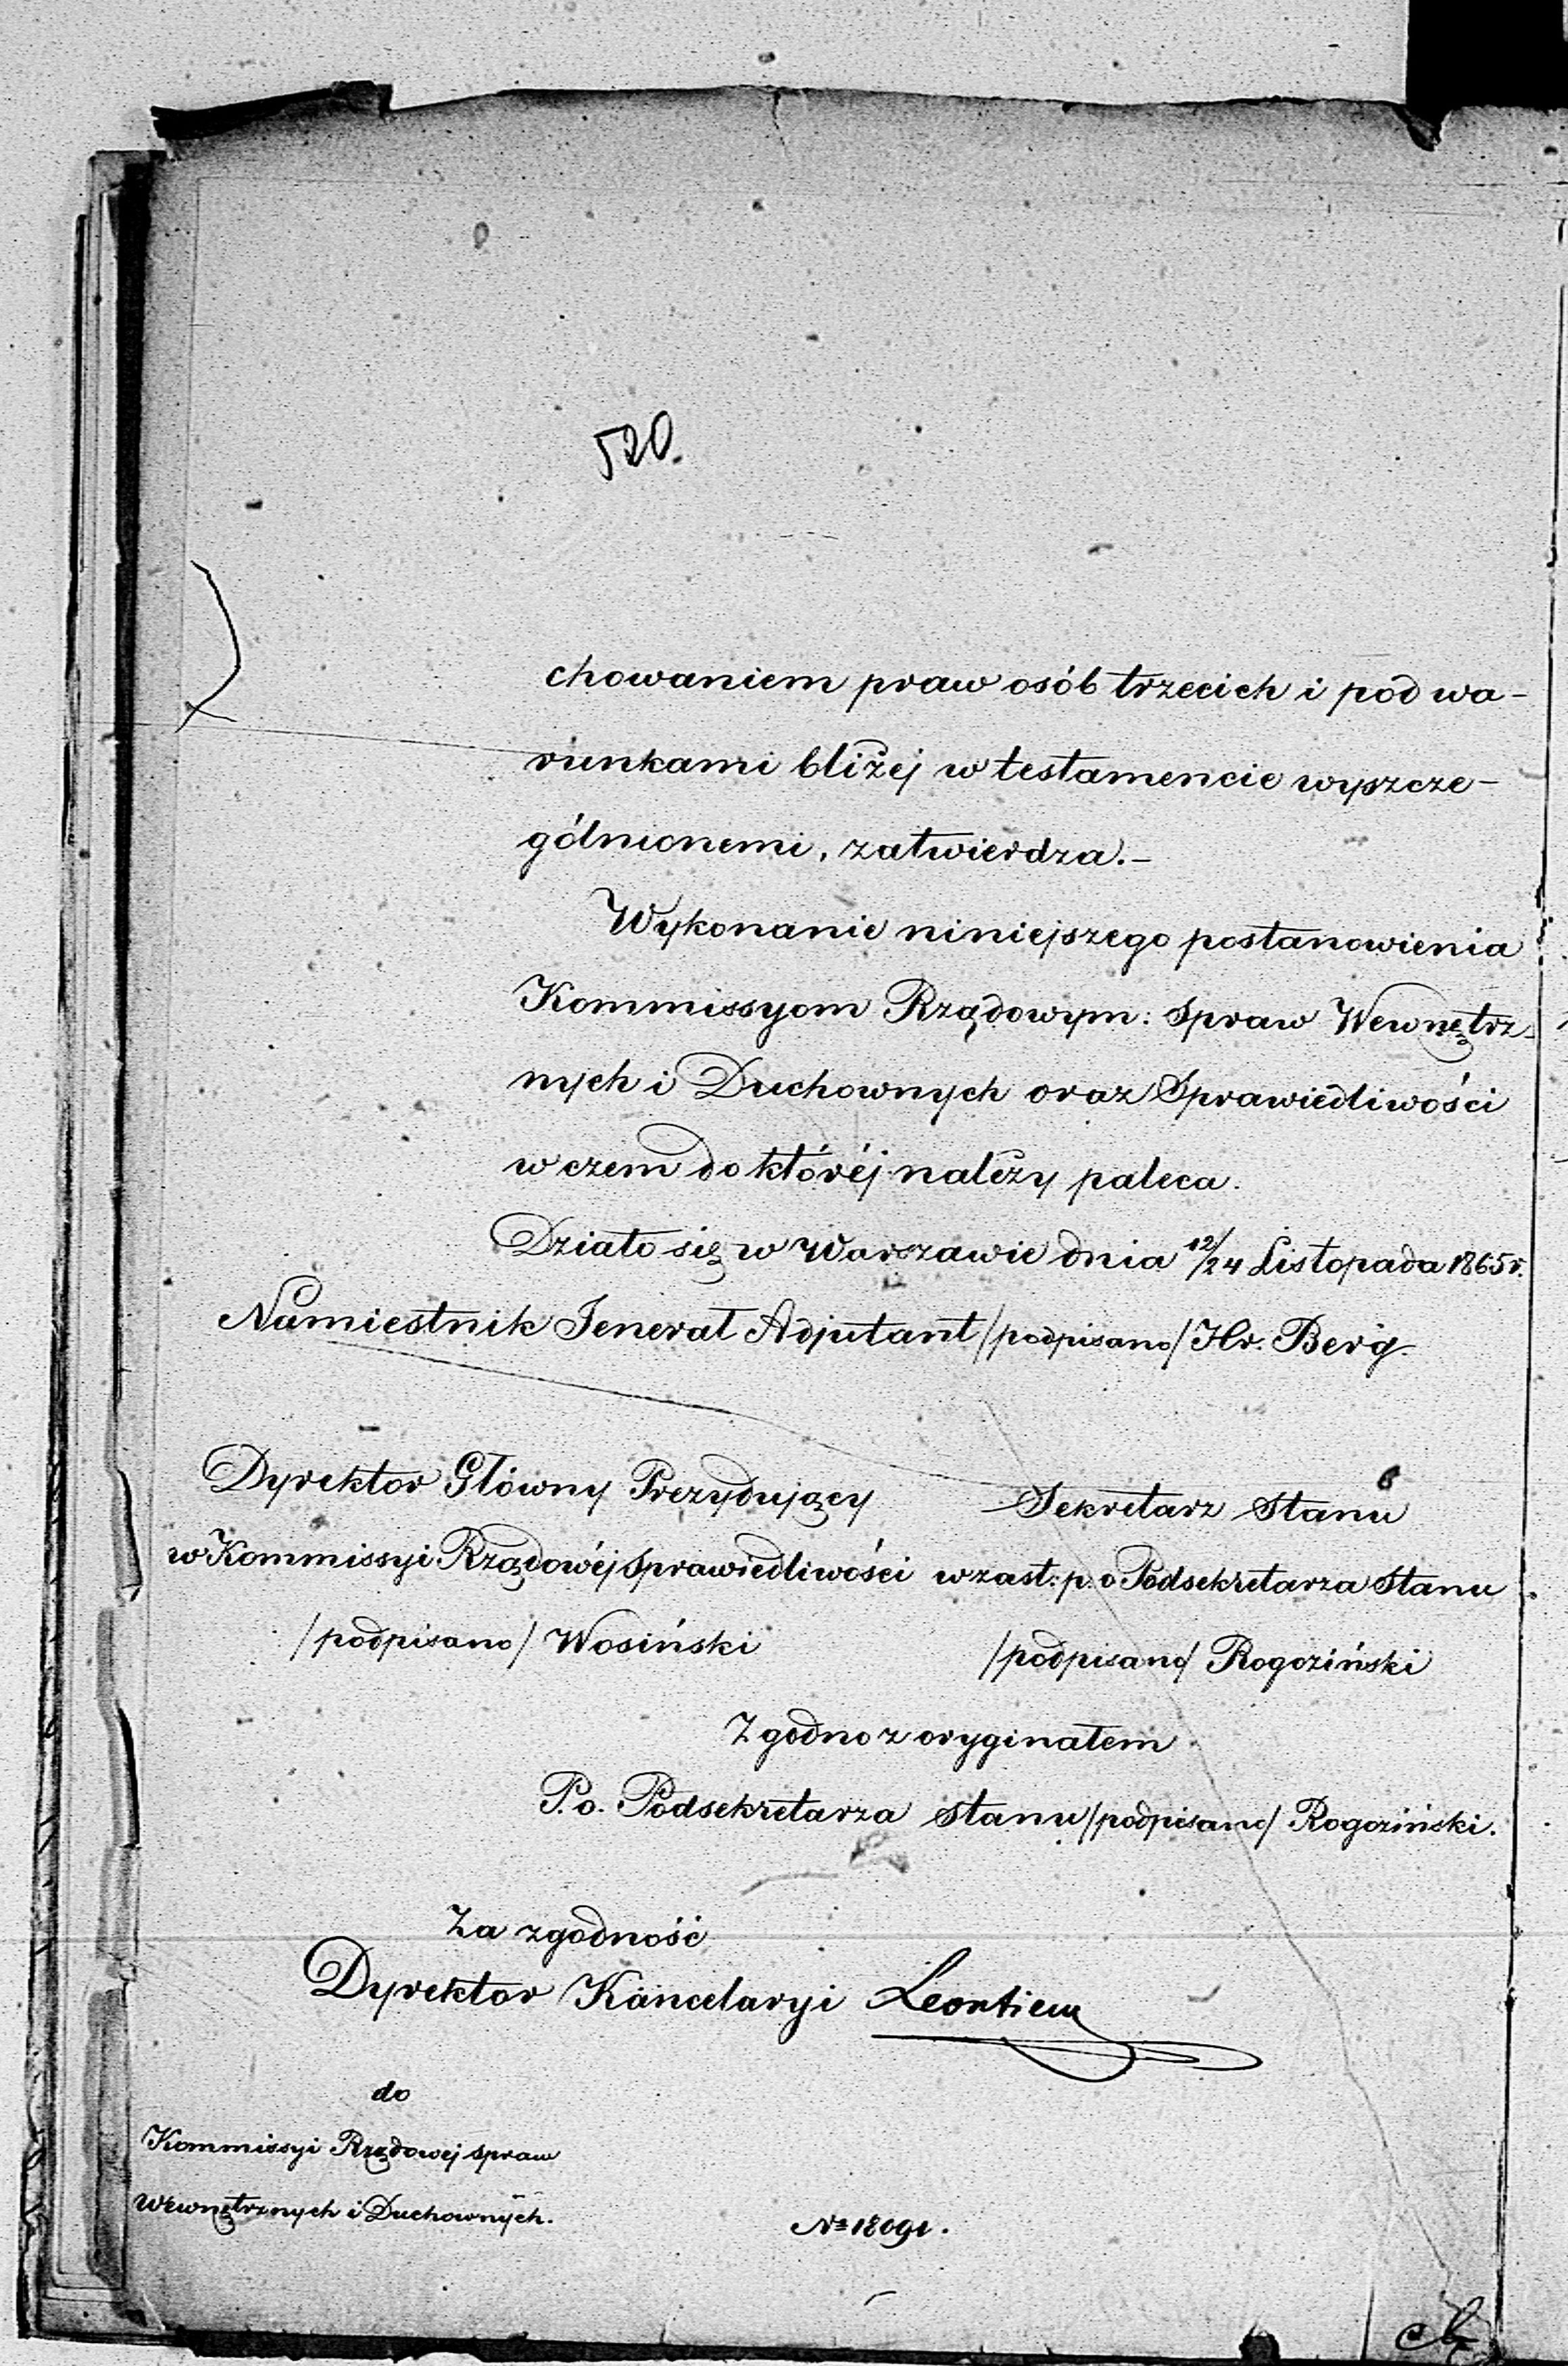 520.
chowaniem praw osób trzecich i pod wa-
runkami bliżej w testamencie wyszcze-
gólnionemi, zatwierdza.-
Wykonanie niniejszego postanowienia
Kommissyom Rządowym: Spraw Wewnętrz-
nych i Duchownych oraz Sprawiedliwości
w czem do któréj należy poleca.
Działo się w Warszawie dnia 12/24 Listopada 1865 r.
Namiestnik Jenerał Adjutant /podpisano/ Hr. Berg.
Dyrektor Główny Prezydujący
w Kommissyi Rządowéj Sprawiedliwości
/podpisano/ Wosiński
Sekretarz Stanu
w zast: p. o Podsekretarza Stanu
/podpisano/ Rogoziński
Zgodno z oryginałem
P. o. Podsekretarza Stanu /podpisano/ Rogoziński.
Za zgodność
Dyrektor Kancelaryi Leontiew
do
Kommissyi Rządowej Spraw
Wewnętrznych i Duchownych.
№ 18091.